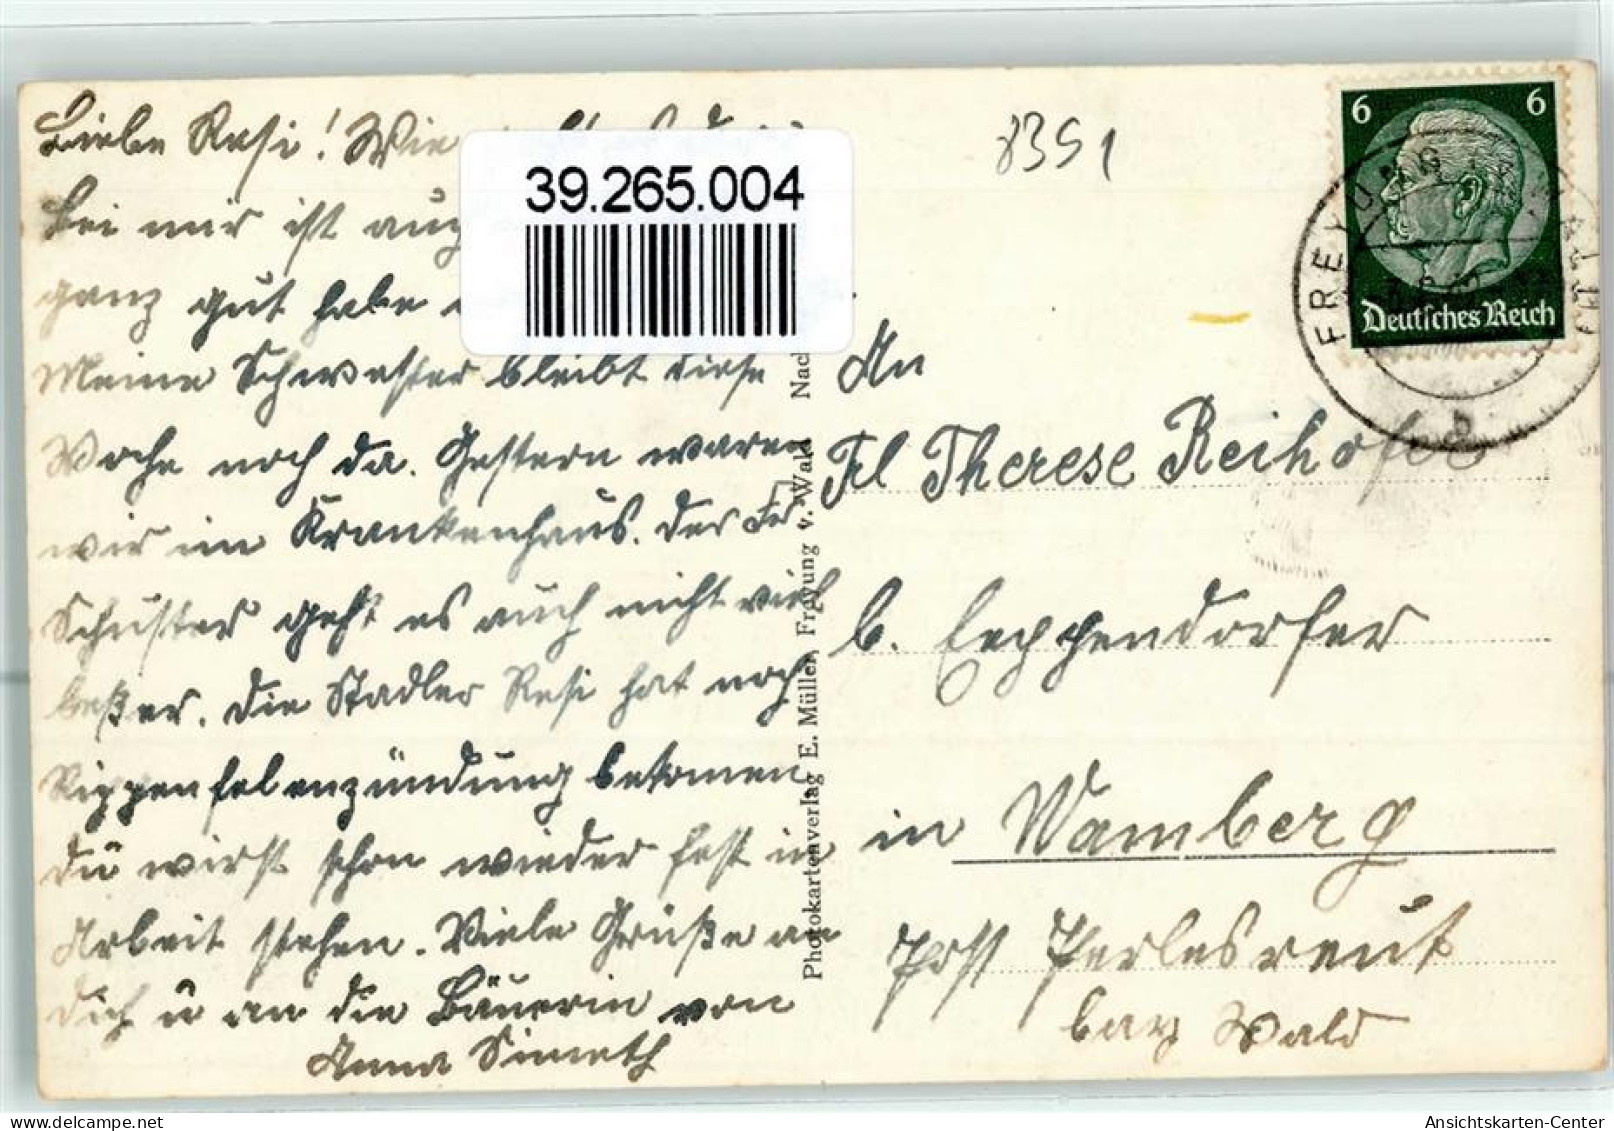 Liebe Resi! Wie
bei mir ist auch
ganz gut habe
Meine Schwester bleibt diese
Woche noch da. Gestern waren
wir im Krankenhaus. Der Fr
Schuster geht es auch nicht viel
beßer. Die Stadler Resi hat noch
Rippenfelenzündung bekomen
Du wirst schon wieder fest in
Arbeit stehen. Viele Grüße an
Dich u an die Bäuerin von
Anna Simeth
39.265.004
8351
6 6
Deutsches Reich
FREYUNG
b
An
Frl Therese Reihofer
b. Eppendorfer
in Wamberg
Post Perlesreut
bay Wald
Photokartenverlag E. Müller, Freyung v. Wald Nac
Ansichtskarten-Center